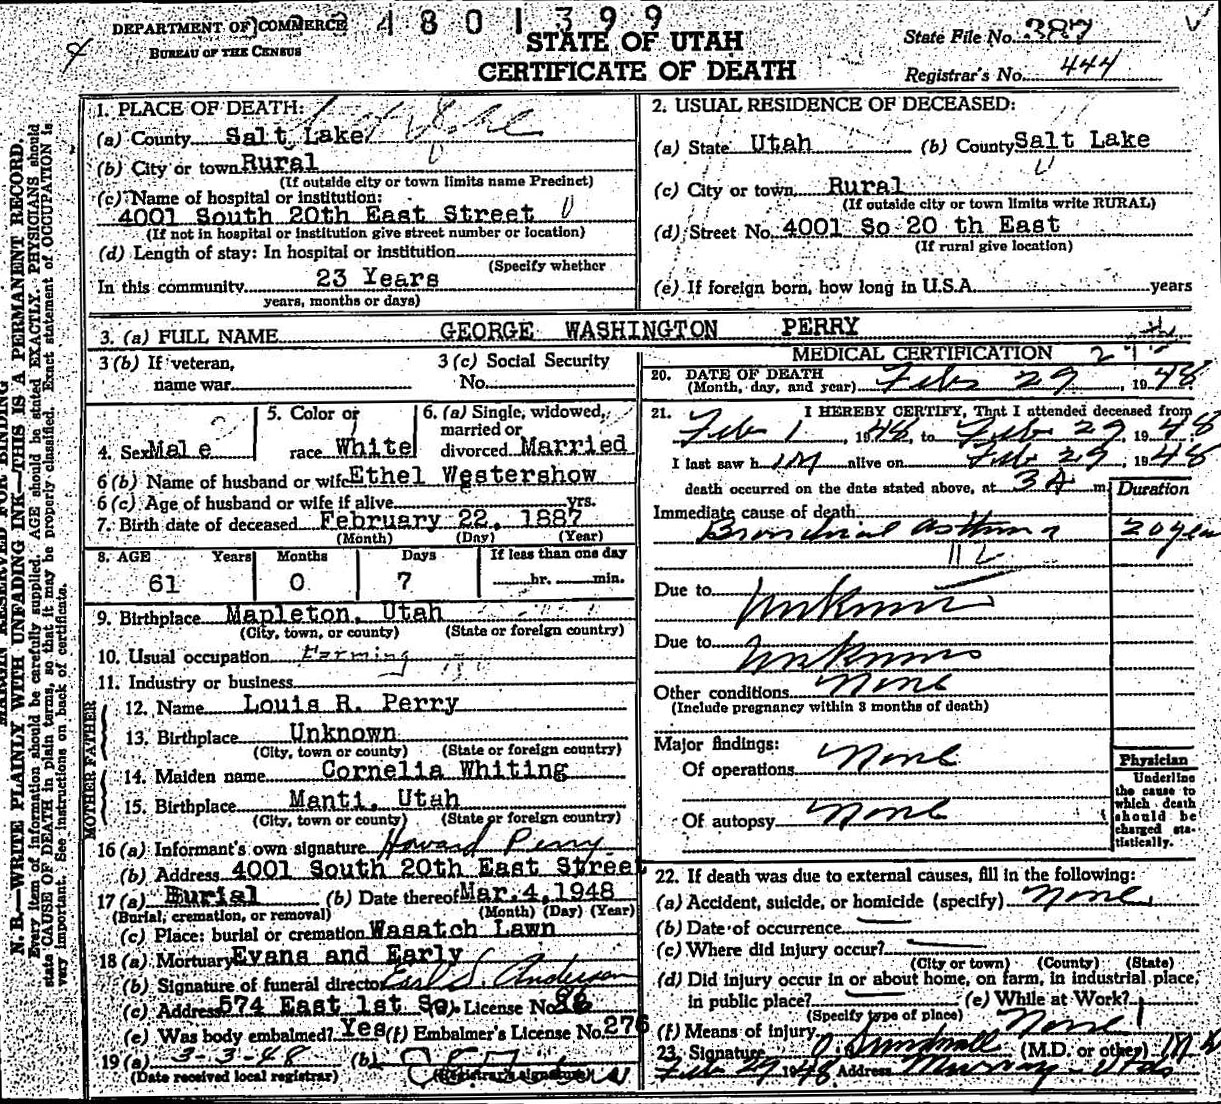 DEPARTMENT OF COMMERCE
BUREAU OF THE CENSUS
4801399
STATE OF UTAH
CERTIFICATE OF DEATH
State File No. 387
Registrar's No. 444
MARGIN RESERVED FOR BINDING
N. B.—WRITE PLAINLY WITH UNFADING INK—THIS IS A PERMANENT RECORD.
Every item of information should be carefully supplied. AGE should be stated EXACTLY. PHYSICIANS should
state CAUSE OF DEATH in plain terms, so that it may be properly classified. Exact statement of OCCUPATION is
very important. See instructions on back of certificate.
1. PLACE OF DEATH:
(a) County Salt Lake
(b) City or town Rural
(If outside city or town limits name Precinct)
(c) Name of hospital or institution:
4001 South 20th East Street
(If not in hospital or institution give street number or location)
(d) Length of stay: In hospital or institution
(Specify whether
In this community 23 Years
years, months or days)
2. USUAL RESIDENCE OF DECEASED:
(a) State Utah (b) County Salt Lake
(c) City or town Rural
(If outside city or town limits write RURAL)
(d) Street No. 4001 So 20 th East
(If rural give location)
(e) If foreign born, how long in U.S.A. years
3. (a) FULL NAME GEORGE WASHINGTON PERRY
3 (b) If veteran,
name war
3 (c) Social Security
No.
4. Sex Male
5. Color or
race White
6. (a) Single, widowed,
married or
divorced Married
6 (b) Name of husband or wife Ethel Westershow
6 (c) Age of husband or wife if alive yrs.
7. Birth date of deceased February 22, 1887
(Month) (Day) (Year)
8. AGE Years Months Days If less than one day
61 0 7 hr. min.
9. Birthplace Mapleton, Utah
(City, town, or county) (State or foreign country)
10. Usual occupation Farming
11. Industry or business
FATHER
12. Name Louis R. Perry
13. Birthplace Unknown
(City, town or county) (State or foreign country)
MOTHER
14. Maiden name Cornelia Whiting
15. Birthplace Manti, Utah
(City, town or county) (State or foreign country)
16 (a) Informant's own signature Howard Perry
(b) Address 4001 South 20th East Street
17 (a) Burial (b) Date thereof Mar. 4, 1948
(Burial, cremation, or removal) (Month) (Day) (Year)
(c) Place: burial or cremation Wasatch Lawn
18 (a) Mortuary Evans and Early
(b) Signature of funeral director Earl S. Anderson
(c) Address 574 East 1st So. License No.
(e) Was body embalmed? Yes (f) Embalmer's License No. 276
19 (a) 3-3-48 (b)
(Date received local registrar) (Registrar's signature)
MEDICAL CERTIFICATION
20. DATE OF DEATH
(Month, day, and year) Feb 29, 1948
21. I HEREBY CERTIFY, That I attended deceased from
Feb 1, 1948, to Feb 29, 1948
I last saw him alive on Feb 29, 1948
death occurred on the date stated above, at 3 A m.
Duration
Immediate cause of death
Bronchial asthma 20 year
112
Due to Unknown
Due to Unknown
Other conditions None
(Include pregnancy within 3 months of death)
Major findings:
Of operations None
Of autopsy None
Physician
Underline
the cause to
which death
should be
charged sta-
tistically.
22. If death was due to external causes, fill in the following:
(a) Accident, suicide, or homicide (specify) None
(b) Date of occurrence
(c) Where did injury occur?
(City or town) (County) (State)
(d) Did injury occur in or about home, on farm, in industrial place,
in public place? (e) While at Work?
(Specify type of place)
(f) Means of injury None
23. Signature O. Sundwall (M.D. or other) M D
Feb 29 1948 Address Murray - Utah